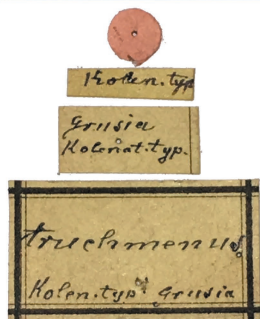 Kolen.typ
Grusia
Kolenat.typ.
truchmenus
Kolen.typ. Grusia